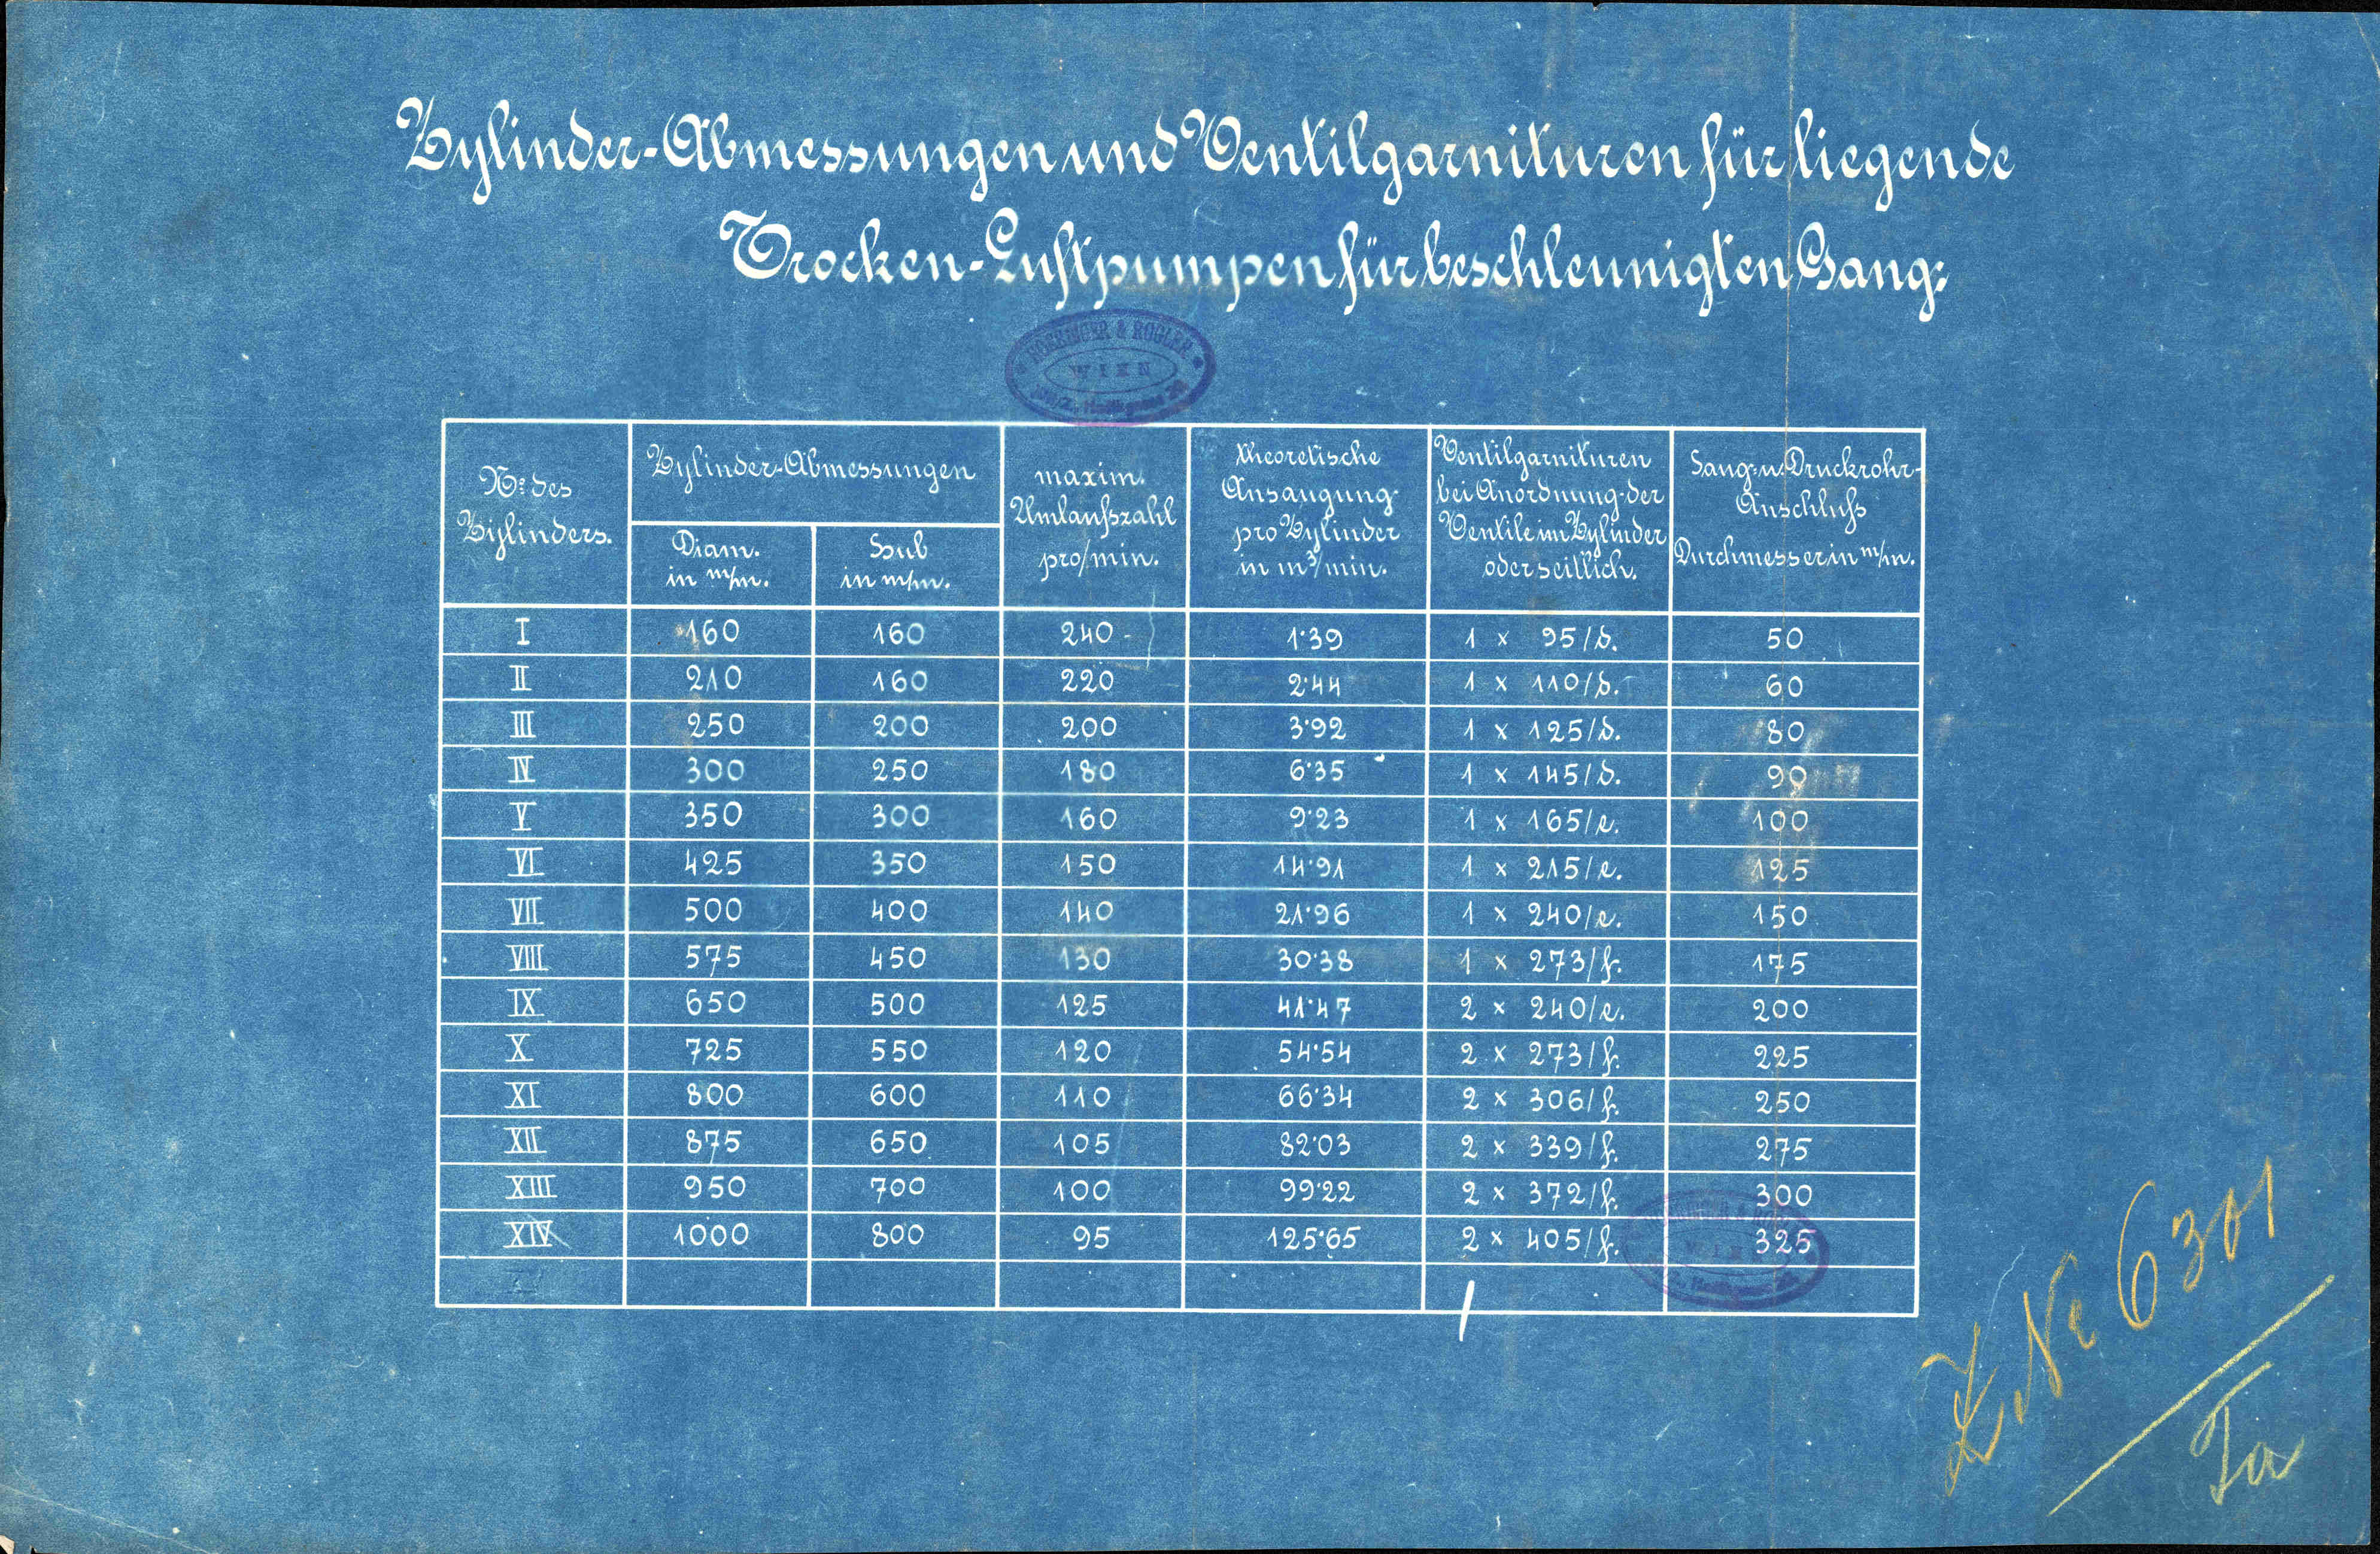 Zylinder-Abmessungen und Ventilgarnituren für liegende
Trocken-Luftpumpen für beschleunigten Gang:
HOERBIGER & ROGLER
WIEN
No: des Zylinders.
Zylinder-Abmessungen
Diam. in m/m.
Hub in m/m.
maxim. Umlaufszahl pro/min.
theoretische Ansaugung pro Zylinder in m³/min.
Ventilgarnituren bei Anordnung der Ventile im Zylinder oder seitlich.
Saug- u. Druckrohr-Anschluss Durchmesser in m/m.
I 160 160 240 1·39 1 x 95/d. 50
II 210 160 220 2·44 1 x 110/d. 60
III 250 200 200 3·92 1 x 125/d. 80
IV 300 250 180 6·35 1 x 145/d. 90
V 350 300 160 9·23 1 x 165/e. 100
VI 425 350 150 14·91 1 x 215/e. 125
VII 500 400 140 21·96 1 x 240/e. 150
VIII 575 450 130 30·38 1 x 273/f. 175
IX 650 500 125 41·47 2 x 240/e. 200
X 725 550 120 54·54 2 x 273/f. 225
XI 800 600 110 66·34 2 x 306/f. 250
XII 875 650 105 82·03 2 x 339/f. 275
XIII 950 700 100 99·22 2 x 372/f. 300
XIV 1000 800 95 125·65 2 x 405/f. 325
WIEN
Z. No 6301
Ia